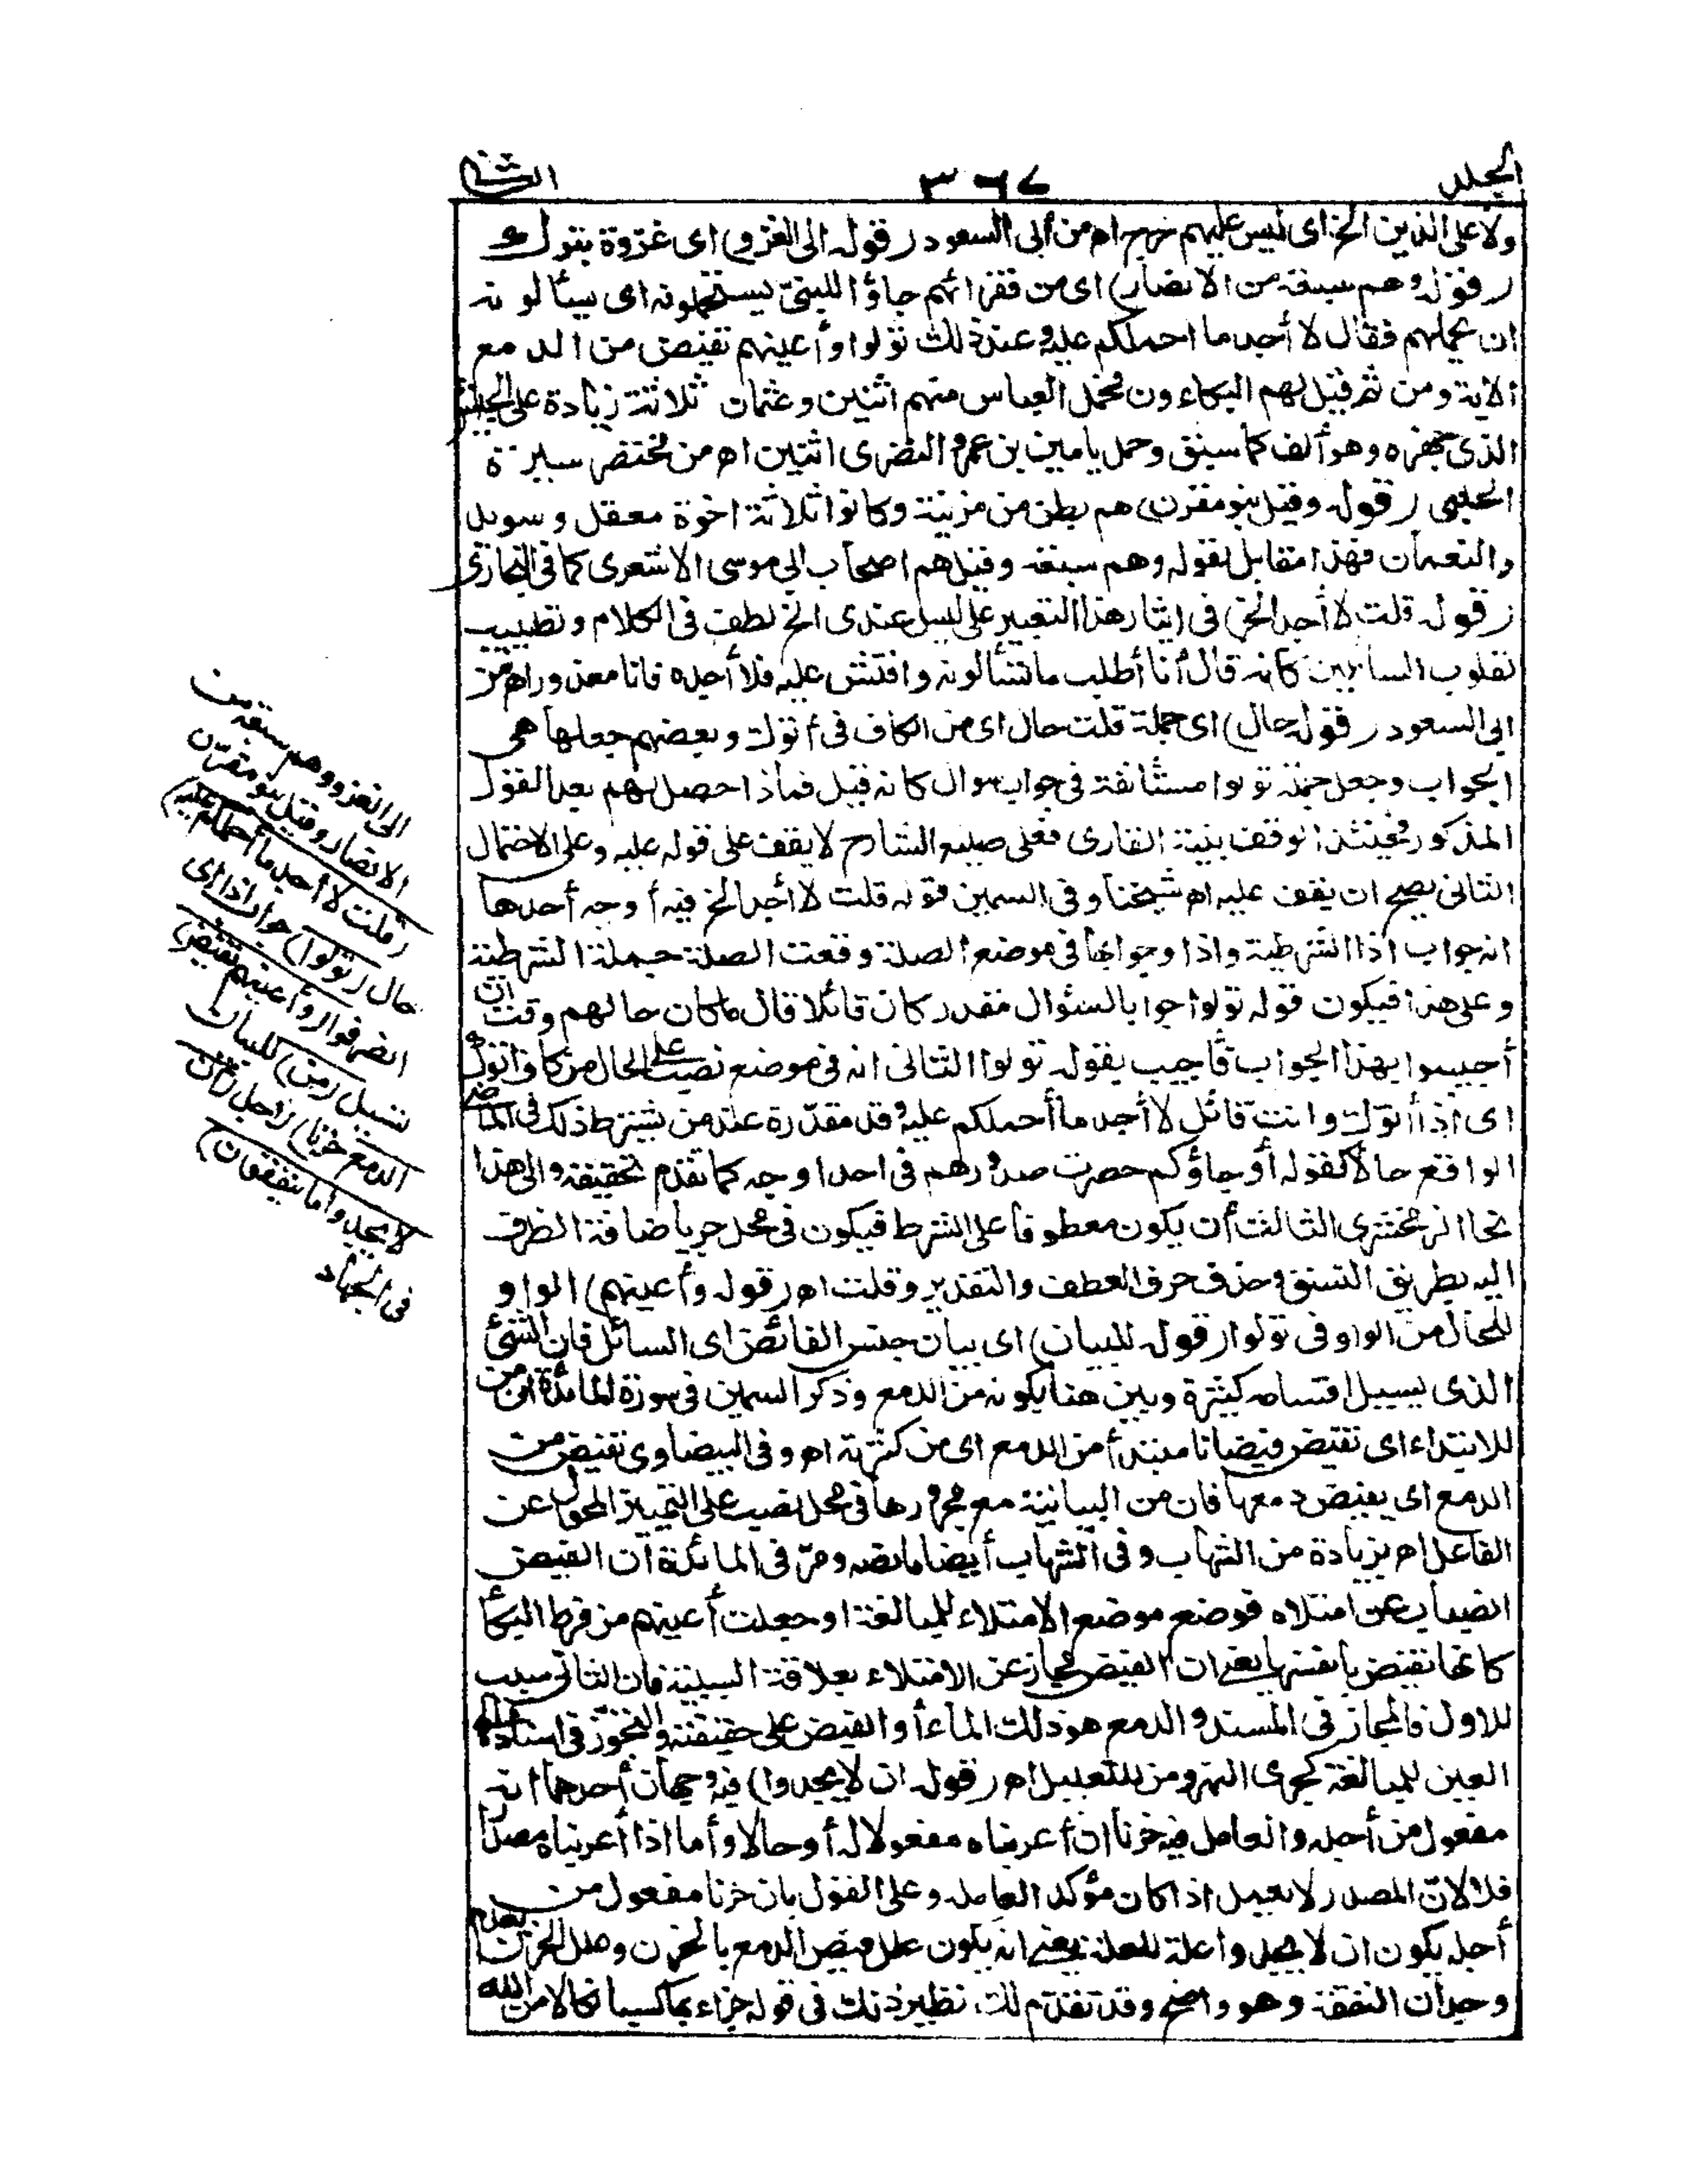 المجلد
٣٦٧
الثانى
ولا على الذين الخ اى ليس عليهم حرج اه من أبى السعود (قوله الى الغزو) اى غزوة تبوك
(قوله وهم سبعة من الانصار) اى من فقرائهم جاؤا للنبىّ يستحملونه اى يسألونه
ان يحملهم فقال لا أجد ما احملكم عليه وعند ذلك تولوا وأعينهم تفيض من الدمع
الاية ومن ثم قيل لهم البكاءون فحمل العباس منهم اثنين وعثمان ثلاثة زيادة على الجيش
الذى جهزه وهو ألف كما سبق وحمل يامين بن عمرو النضرى اثنين اه من مختصر سيرة
الحلبى (قوله وقيل بنو مقرن) هم بطن من مزينة وكانوا ثلاثة اخوة معقل وسويد
والنعمان فهذا مقابل لقوله وهم سبعة وقيل هم اصحاب ابى موسى الاشعرى كما فى البخارى
(قوله قلت لا أجد الخ) فى ايثار هذا التعبير على ليس عندى الخ لطف فى الكلام وتطييب
لقلوب السائلين كانه قال أنا أطلب ما تسألونه وافتش عليه فلا أجده فانا معذور اه من
ابى السعود (قوله حال) اى جملة قلت حال اى من الكاف فى أتوك وبعضهم جعلها هى
الجواب وجعل جملة تولوا مستأنفة فى جواب سوال كانه قيل فماذا حصل لهم بعد القول
المذكور فحينئذ الوقف بنية القارى فعلى صنيع الشارح لا يقف على قوله عليه وعلى الاحتمال
الثانى يصح ان يقف عليه اه شيخنا وفى السمين قوله قلت لا أجد الخ فيه أوجه أحدها
انه جواب اذا الشرطية واذا وجوابها فى موضع الصلة وقعت الصلة جملة الشرطية
وعلى هذا فيكون قوله تولوا جوابا لسؤال مقدر كان قائلا قال ما كان حالهم وقت ان
أجيبوا بهذا الجواب فأجيب بقوله تولوا الثانى انه فى موضع نصب على الحال من كاف اتوك
اى اذا أتوك وانت قائل لا أجد ما أحملكم عليه وقد مقدّرة عند من يشترط ذلك فى الماضى
الواقع حالا كقوله أو جاؤكم حصرت صدورهم فى احد اوجه كما تقدم تحقيقه والى هذا
نحا الزمخشرى الثالث أن يكون معطوفا على الشرط فيكون فى محل جر باضافة الظرف
اليه بطريق النسق وحذف حرف العطف والتقدير وقلت اه (قوله وأعينهم) الواو
للحال من الواو فى تولوا (قوله للبيان) اى بيان جنس الفائض اى السائل فان الشئ
الذى يسيل اقسامه كثيرة وبين هنا بكونه من الدمع وذكر السمين فى سورة المائدة ان من
للابتداء اى تفيض فيضانا مبتدأ من الدمع اى من كثرته اه وفى البيضاوى تفيض من
الدمع اى يفيض دمعها فان من البيانية مع مجرورها فى محل نصب على التمييز المحول عن
الفاعل اه بزيادة من الشهاب وفى الشهاب أيضا ما نصه ومرّ فى المائدة ان الفيض
انصباب عن امتلاء فوضع موضع الامتلاء للمبالغة او جعلت أعينهم من فرط البكأ
كانها تفيض بانفسها يعنى ان الفيض مجاز عن الامتلاء بعلاقة السببية فان الثانى سبب
للاول فالمجاز فى المسند والدمع هو ذلك الماء أو الفيض على حقيقته والتجوّز فى اسناده الى
العين للمبالغة كجرى النهر ومن للتعليل اه (قوله ان لا يجدوا) فيه وجهان أحدهما انه
مفعول من أجله والعامل فيه حزنا ان أعربناه مفعولا له أو حالا وأما اذا أعربناه مصدرا
فلا لانّ المصدر لا يعمل اذا كان مؤكد العامله وعلى القول بان حزنا مفعول من
أجله يكون ان لا يجدوا علة للعلة يعنى انه يكون علل فيض الدمع بالحزن وعلل الحزن بعدم
وجدان النفقة وهو واضح وقد تقدّم لك نظير ذلك فى قوله جزاء بما كسبا نكالا من الله
الى الغزو وهم سبعة من
الانصار وقيل بنو مقرّن
(قلت لا أجد ما أحملكم عليه)
حال (تولوا) جواب اذا اى
انصرفوا (وأعينهم تفيض)
تسيل (من) للبيان
(الدمع حزنا) لاجل (أن
لا يجدوا ما ينفقون)
فى الجهاد